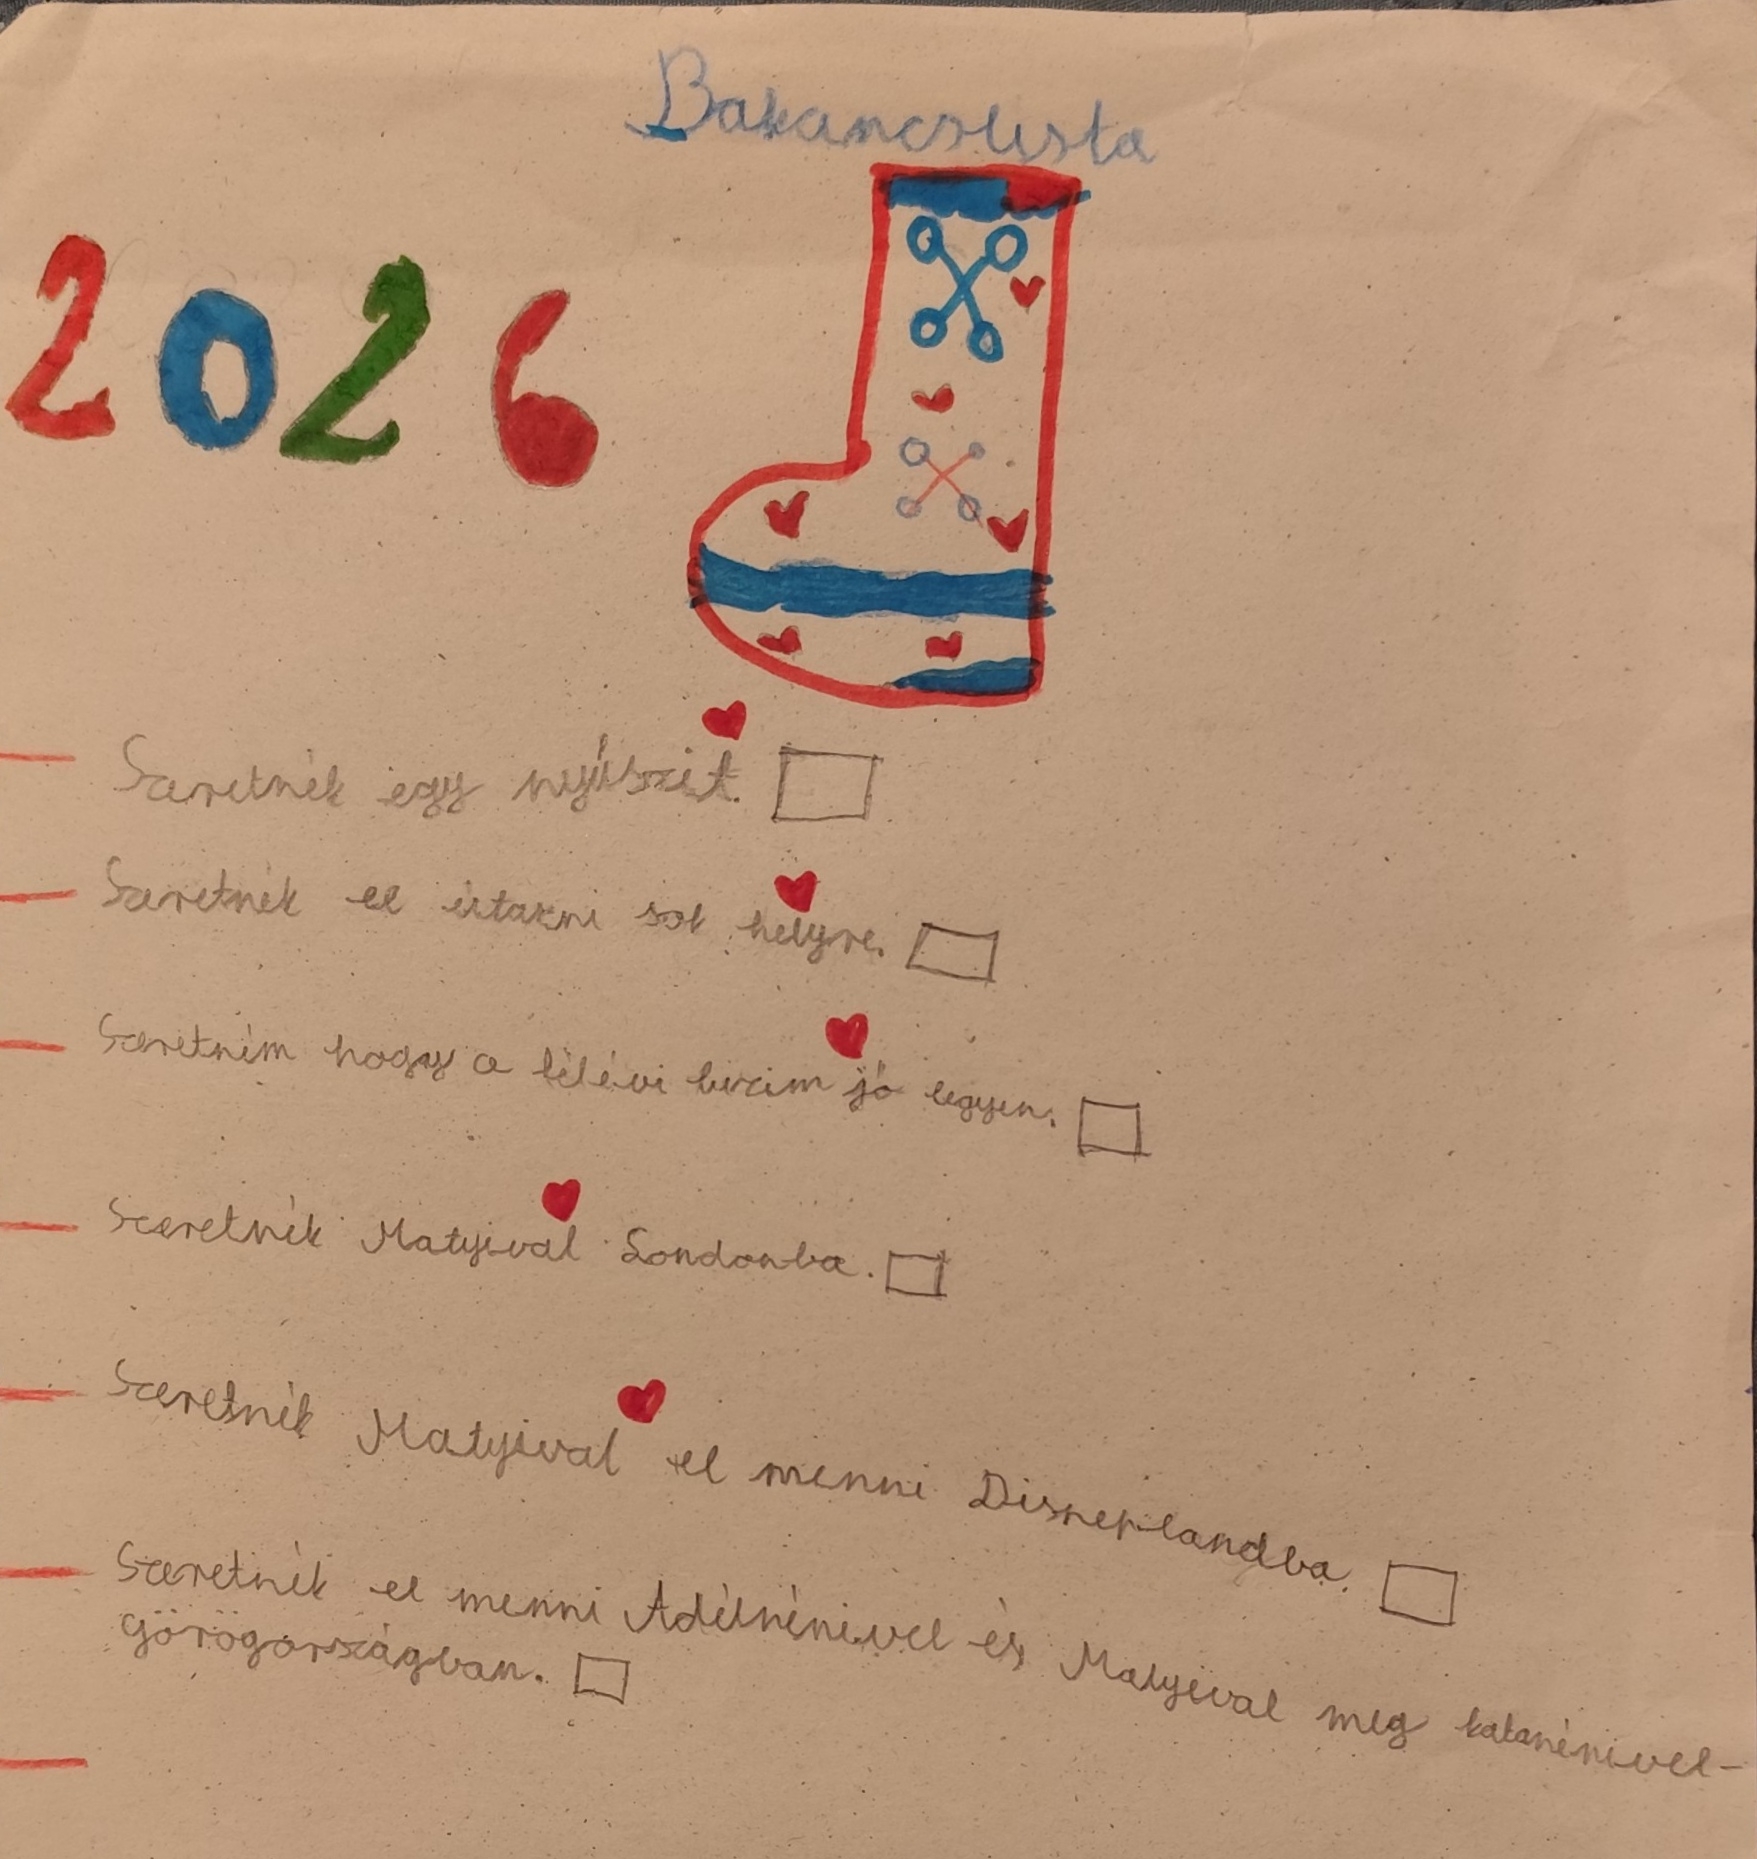 Bakancslista
2026
Szeretnék egy nyúszit.
Szeretnék el útazni sok helyre.
Szeretném hogy a félévi bizim jó legyen.
Szeretnék Matyival Londonba.
Szeretnék Matyival el menni Disneylandba.
Szeretnék el menni Adélnénivel és Matyival meg katanénivel-
görögországban.